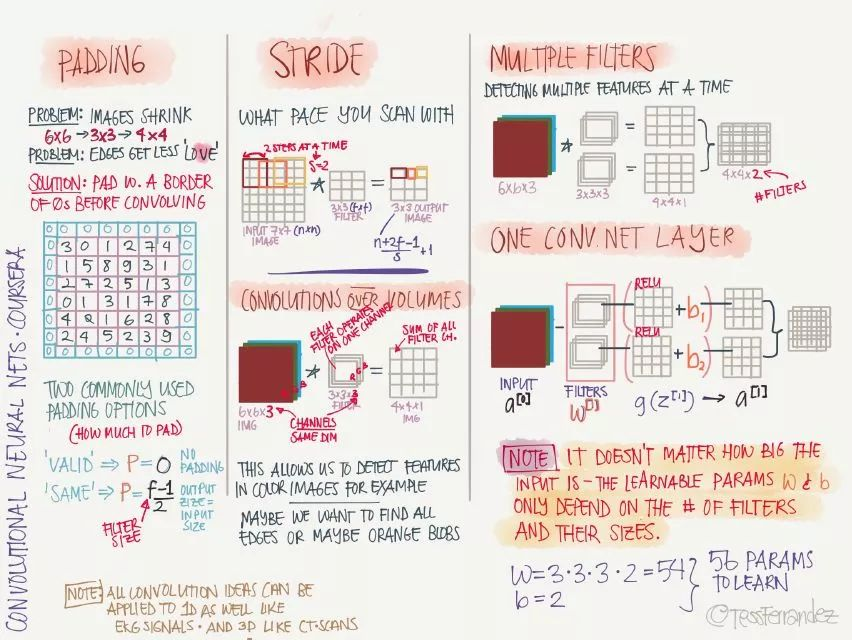 CONVOLUTIONAL NEURAL NETS · COURSERA
PADDING
PROBLEM: IMAGES SHRINK
6x6 → 3x3 → 4x4
PROBLEM: EDGES GET LESS 'LOVE'
SOLUTION: PAD W. A BORDER
OF 0s BEFORE CONVOLVING
0 0 0 0 0 0 0 0
0 3 0 1 2 7 4 0
0 1 5 8 9 3 1 0
0 2 7 2 5 1 3 0
0 0 1 3 1 7 8 0
0 4 2 1 6 2 8 0
0 2 4 5 2 3 9 0
0 0 0 0 0 0 0 0
TWO COMMONLY USED
PADDING OPTIONS
(HOW MUCH TO PAD)
'VALID' ⇒ P = 0 NO PADDING
'SAME' ⇒ P = f-1/2 OUTPUT SIZE = INPUT SIZE
FILTER SIZE
NOTE: ALL CONVOLUTION IDEAS CAN BE
APPLIED TO 1D AS WELL LIKE
EKG SIGNALS · AND 3D LIKE CT-SCANS
STRIDE
WHAT PACE YOU SCAN WITH
2 STEPS AT A TIME
S=2
* =
INPUT 7x7 (nxn)
IMAGE
3x3 (fxf)
FILTER
3x3 OUTPUT
IMAGE
n+2f-1/s +1
CONVOLUTIONS OVER VOLUMES
EACH
FILTER OPERATES
ON ONE CHANNEL
SUM OF ALL
FILTER CH.
R G B
* =
R G B
6x6x3
IMG
3x3x3
FILTER
4x4x1
IMG
CHANNELS
SAME DIM
THIS ALLOWS US TO DETECT FEATURES
IN COLOR IMAGES FOR EXAMPLE
MAYBE WE WANT TO FIND ALL
EDGES OR MAYBE ORANGE BLOBS
MULTIPLE FILTERS
DETECTING MULTIPLE FEATURES AT A TIME
* =
=
6x6x3
3x3x3
4x4x1
4x4x2
# FILTERS
ONE CONV. NET LAYER
RELU
( + b1 )
RELU
( + b2 )
INPUT
a[0]
FILTERS
W[1]
g(z[1]) → a[1]
NOTE IT DOESN'T MATTER HOW BIG THE
INPUT IS - THE LEARNABLE PARAMS W & b
ONLY DEPEND ON THE # OF FILTERS
AND THEIR SIZES.
W = 3·3·3·2 = 54
b = 2
56 PARAMS
TO LEARN
@TessFerrandez